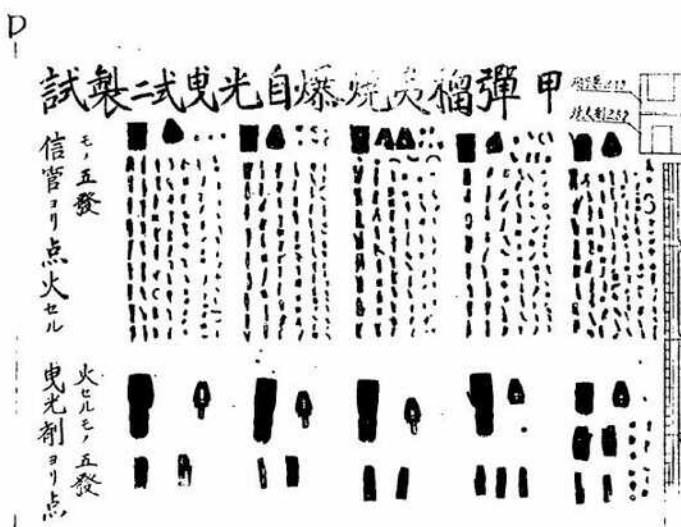 D
試製二式曳光自爆焼夷榴彈 甲
信管ヨリ点火セル
モノ五發
曳光剤ヨリ点
火セルモノ五發